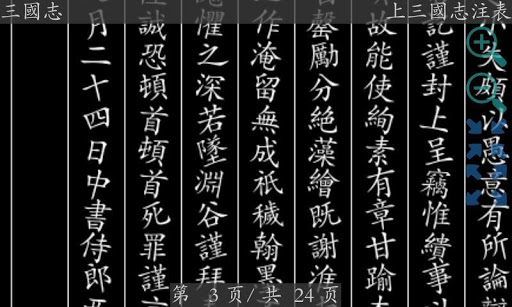 三國志
上三國志注表
小失頗以愚意有所論
訖謹封上呈竊惟繢事
故能使絢素有章甘踰
罄勵分絕藻繪既謝淮
之作淹留無成祇穢翰墨
懼之深若墜淵谷謹拜
誠恐頓首頓首死罪謹
月二十四日中書侍郎
第 3 页/共 24 页